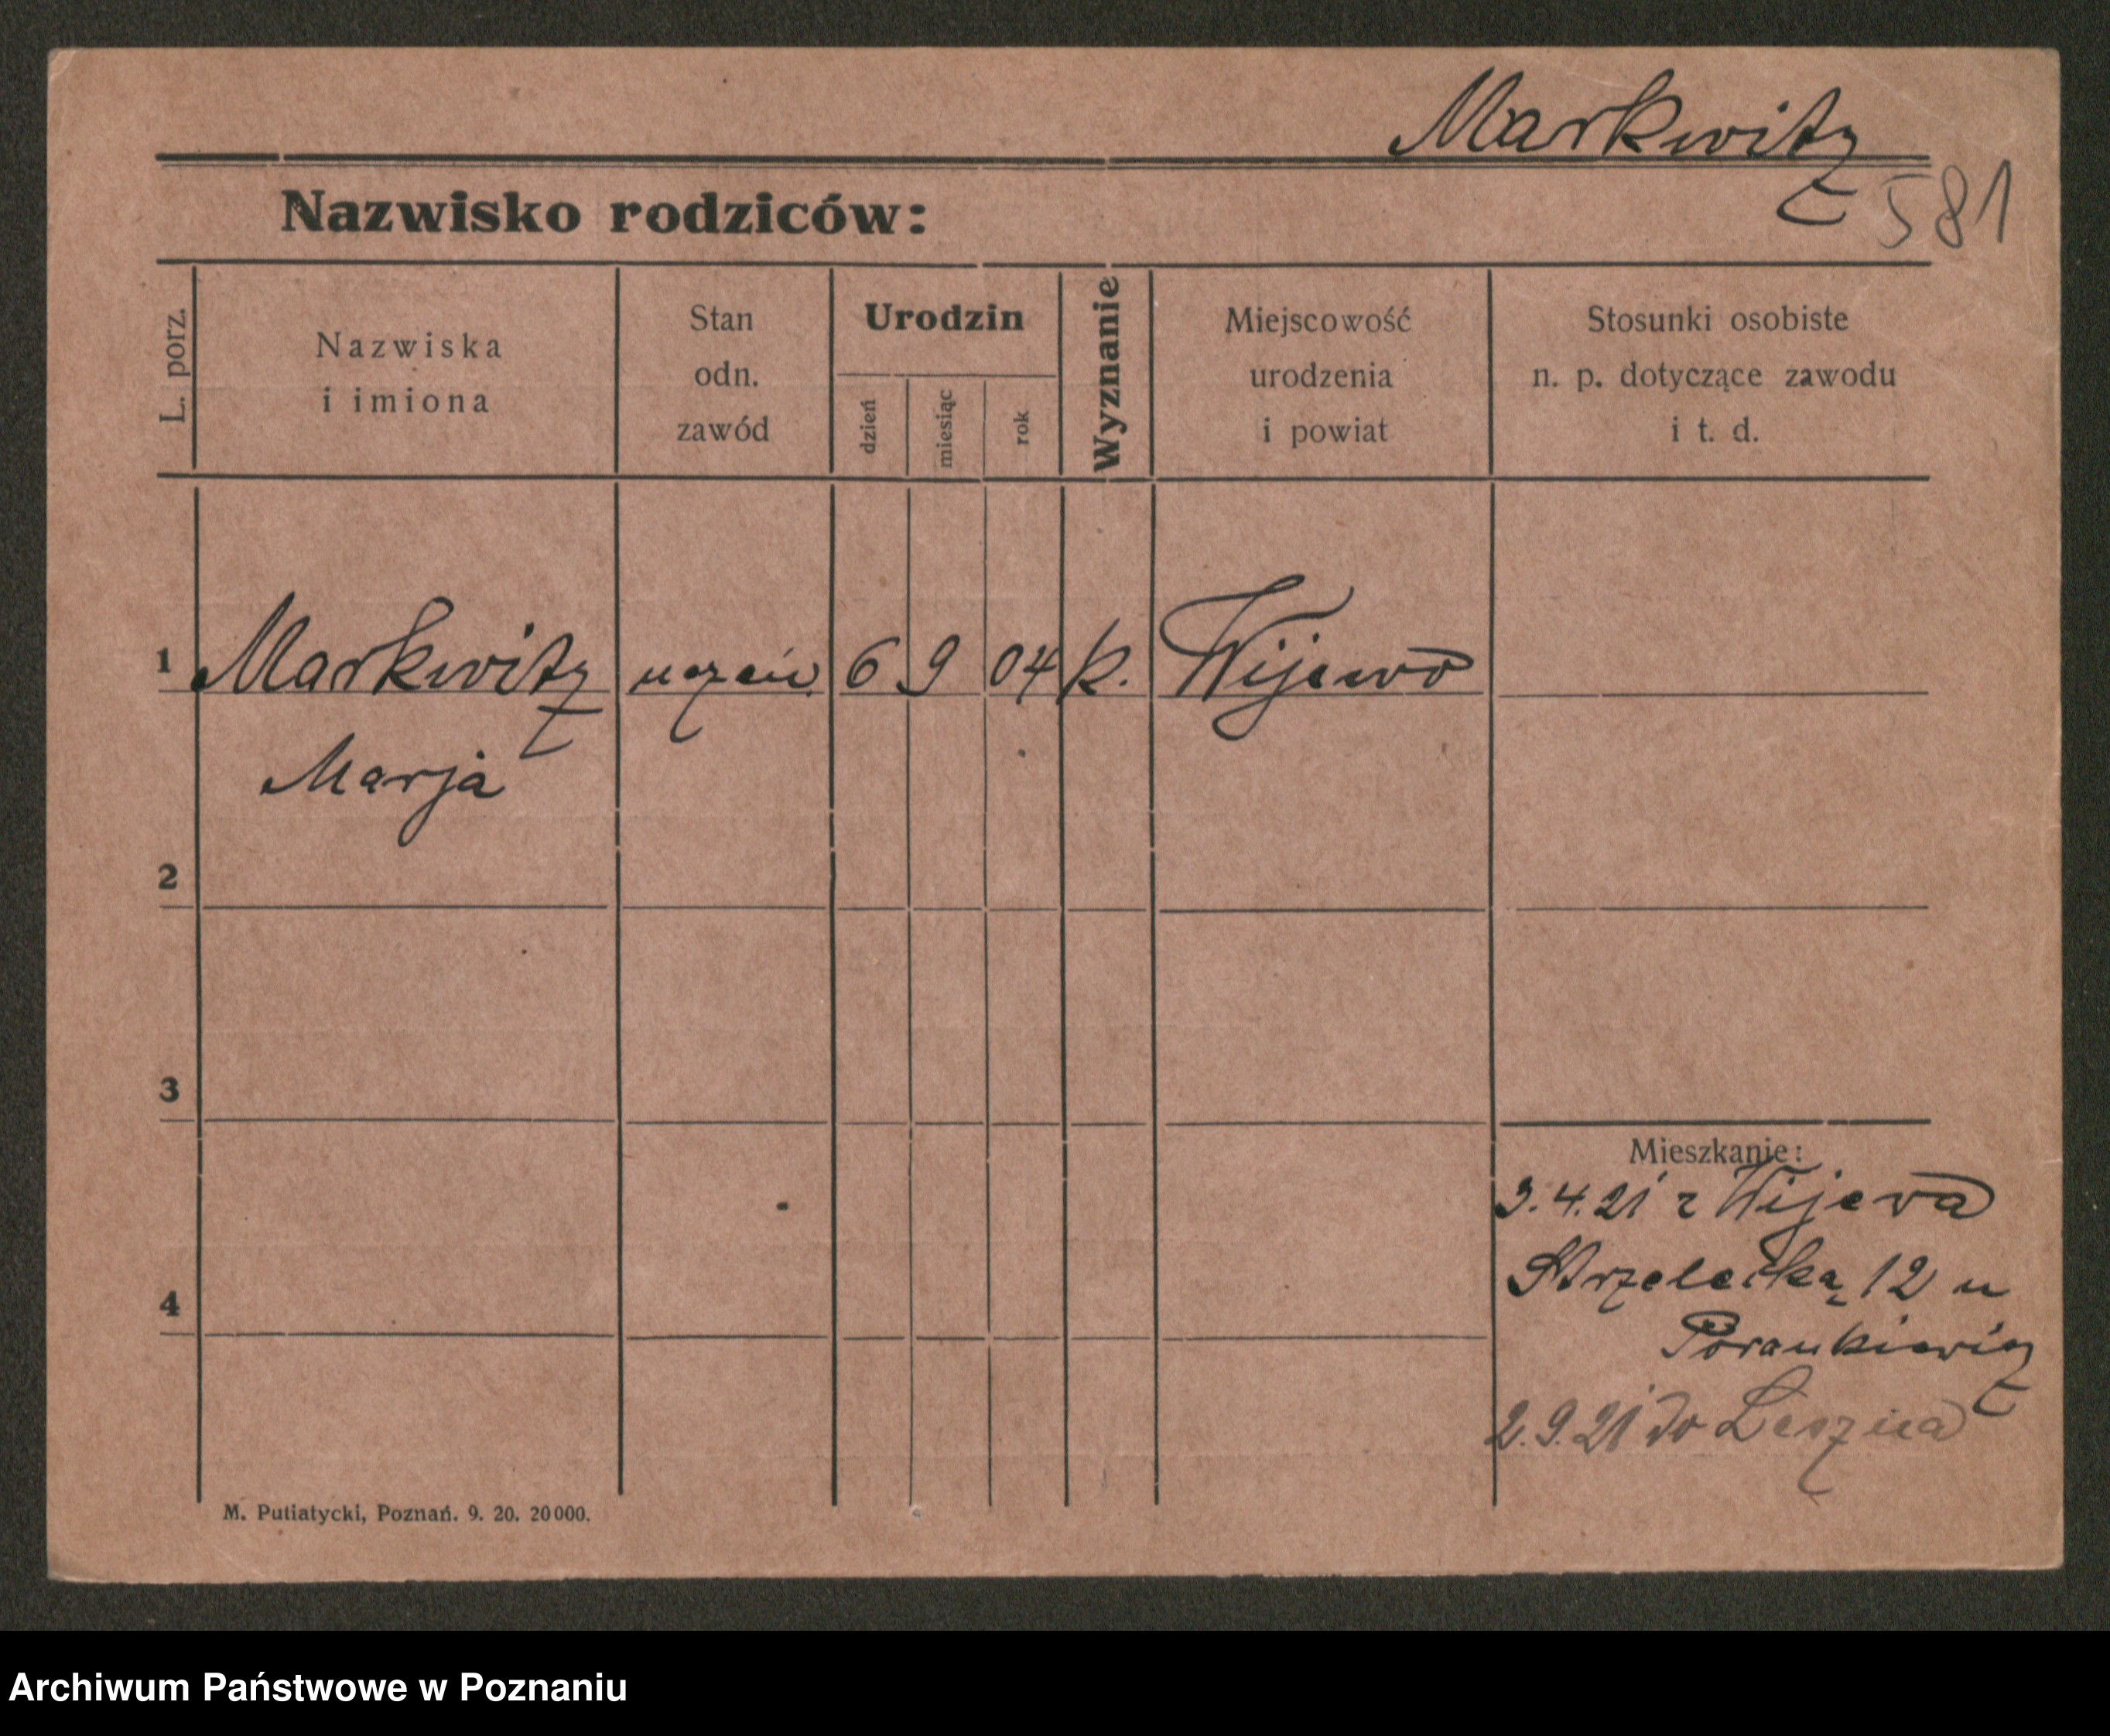 Markwitz
581
Nazwisko rodziców:
L. porz.
Nazwiska
i imiona
Stan
odn.
zawód
Urodzin
dzień
miesiąc
rok
Wyznanie
Miejscowość
urodzenia
i powiat
Stosunki osobiste
n. p. dotyczące zawodu
i t. d.
1 Markwitz uczeń. 6 9 04 k. Wijewo
Marja
2
3
Mieszkanie:
3.4.21 z Wijewa
Strzelecka, 12 u
4
Porankiewicz
2.9.21 do Leszna
M. Putiatycki, Poznań. 9. 20. 20000.
Archiwum Państwowe w Poznaniu